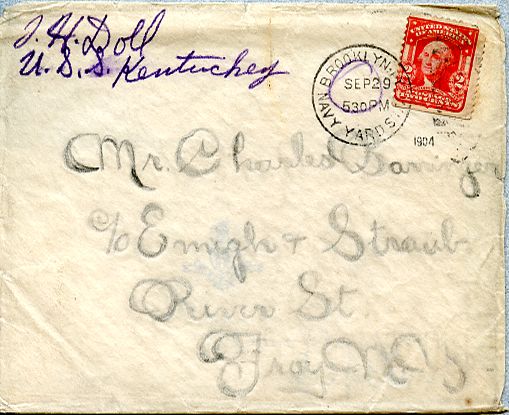 J. H. Doll
U. S. S. Kentuckey
BROOKLYN
SEP 29
530 PM
NAVY YARD STA.
1904
UNITED STATES
OF AMERICA
2 2
TWO CENTS
Mr. Charles
c/o Emigh & Straub
River St.
Troy N. Y.